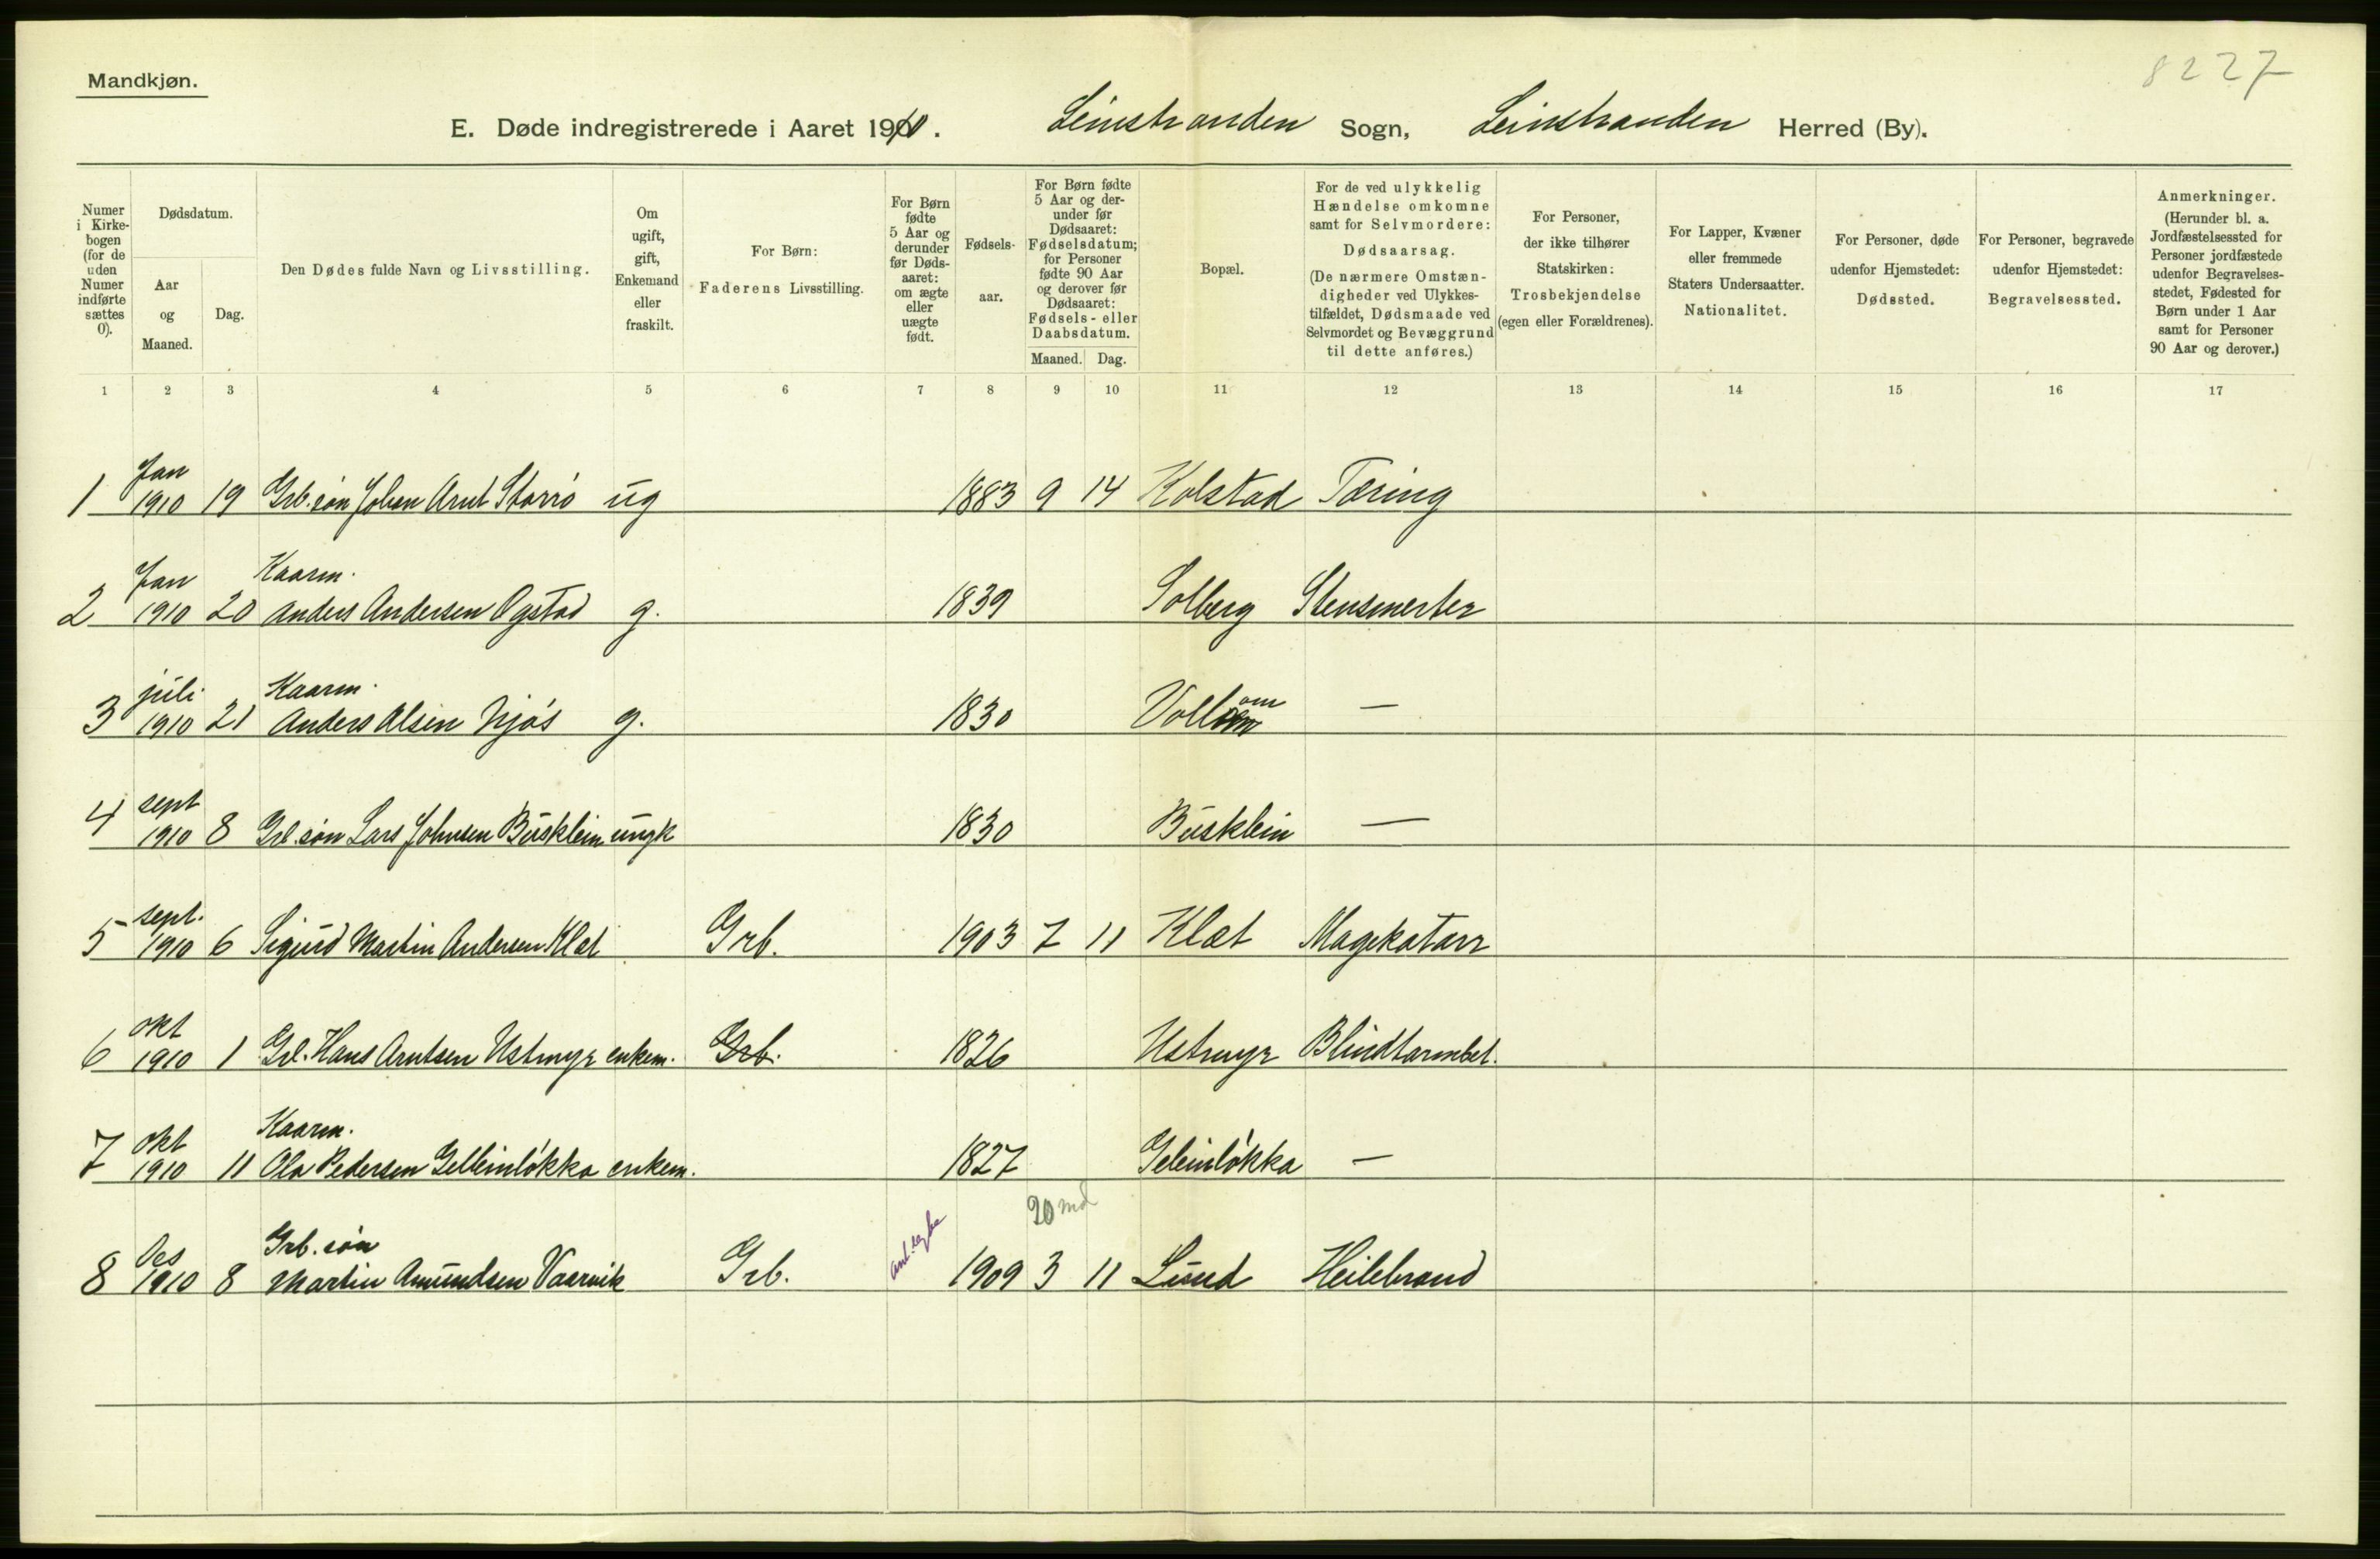 8227
Mandkjøn.
E. Døde indregistrerede i Aaret 1910. Leinstranden Sogn, Leinstranden Herred (By).
Numer i Kirkebogen (for de uden Numer indførte sættes 0).
Dødsdatum.
Aar og Maaned.
Dag.
Den Dødes fulde Navn og Livsstilling.
Om ugift, gift, Enkemand eller fraskilt.
For Børn: Faderens Livsstilling.
For Børn fødte 5 Aar og derunder før Dødsaaret: om ægte eller uægte født.
Fødselsaar.
For Børn fødte 5 Aar og derunder før Dødsaaret: Fødselsdatum; for Personer fødte 90 Aar og derover før Dødsaaret: Fødsels- eller Daabsdatum.
Maaned. Dag.
Bopæl.
For de ved ulykkelig Hændelse omkomne samt for Selvmordere: Dødsaarsag. (De nærmere Omstændigheder ved Ulykkestilfældet, Dødsmaade ved Selvmordet og Bevæggrund til dette anføres.)
For Personer, der ikke tilhører Statskirken: Trosbekjendelse (egen eller Forældrenes).
For Lapper, Kvæner eller fremmede Staters Undersaatter. Nationalitet.
For Personer, døde udenfor Hjemstedet: Dødssted.
For Personer, begravede udenfor Hjemstedet: Begravelsessted.
Anmerkninger. (Herunder bl. a. Jordfæstelsessted for Personer jordfæstede udenfor Begravelsesstedet, Fødested for Børn under 1 Aar samt for Personer 90 Aar og derover.)
1 2 3 4 5 6 7 8 9 10 11 12 13 14 15 16 17
1 Jan 1910 19 Grb. søn Johan Arnt Storrø ug 1883 9 14 Kolstad Tæring
2 Jan 1910 20 Kaarm. Anders Andersen Ogstad g. 1839 Solberg Stensmerter
3 juli 1910 21 Kaarm. Anders Olsen Njøs g. 1830 Vollom —
4 sept 1910 8 Grb. søn Lars Johnsen Busklein ungk 1830 Busklein —
5 sept. 1910 6 Sigurd Martin Andersen Klæt Grb. 1903 7 11 Klæt Magekatarr
6 okt 1910 1 Grb. Hans Arntsen Ustmyr enkem. Grb. 1826 Ustmyr Blindtarmbet.
7 okt 1910 11 Kaarm. Ola Pedersen Gelleinløkka enkem. 1827 Geleinløkka —
20 md
8 Des 1910 8 Grb. søn Martin Amundsen Vaarvik Grb. ant. ægte 1909 3 11 Lund Heilebrand